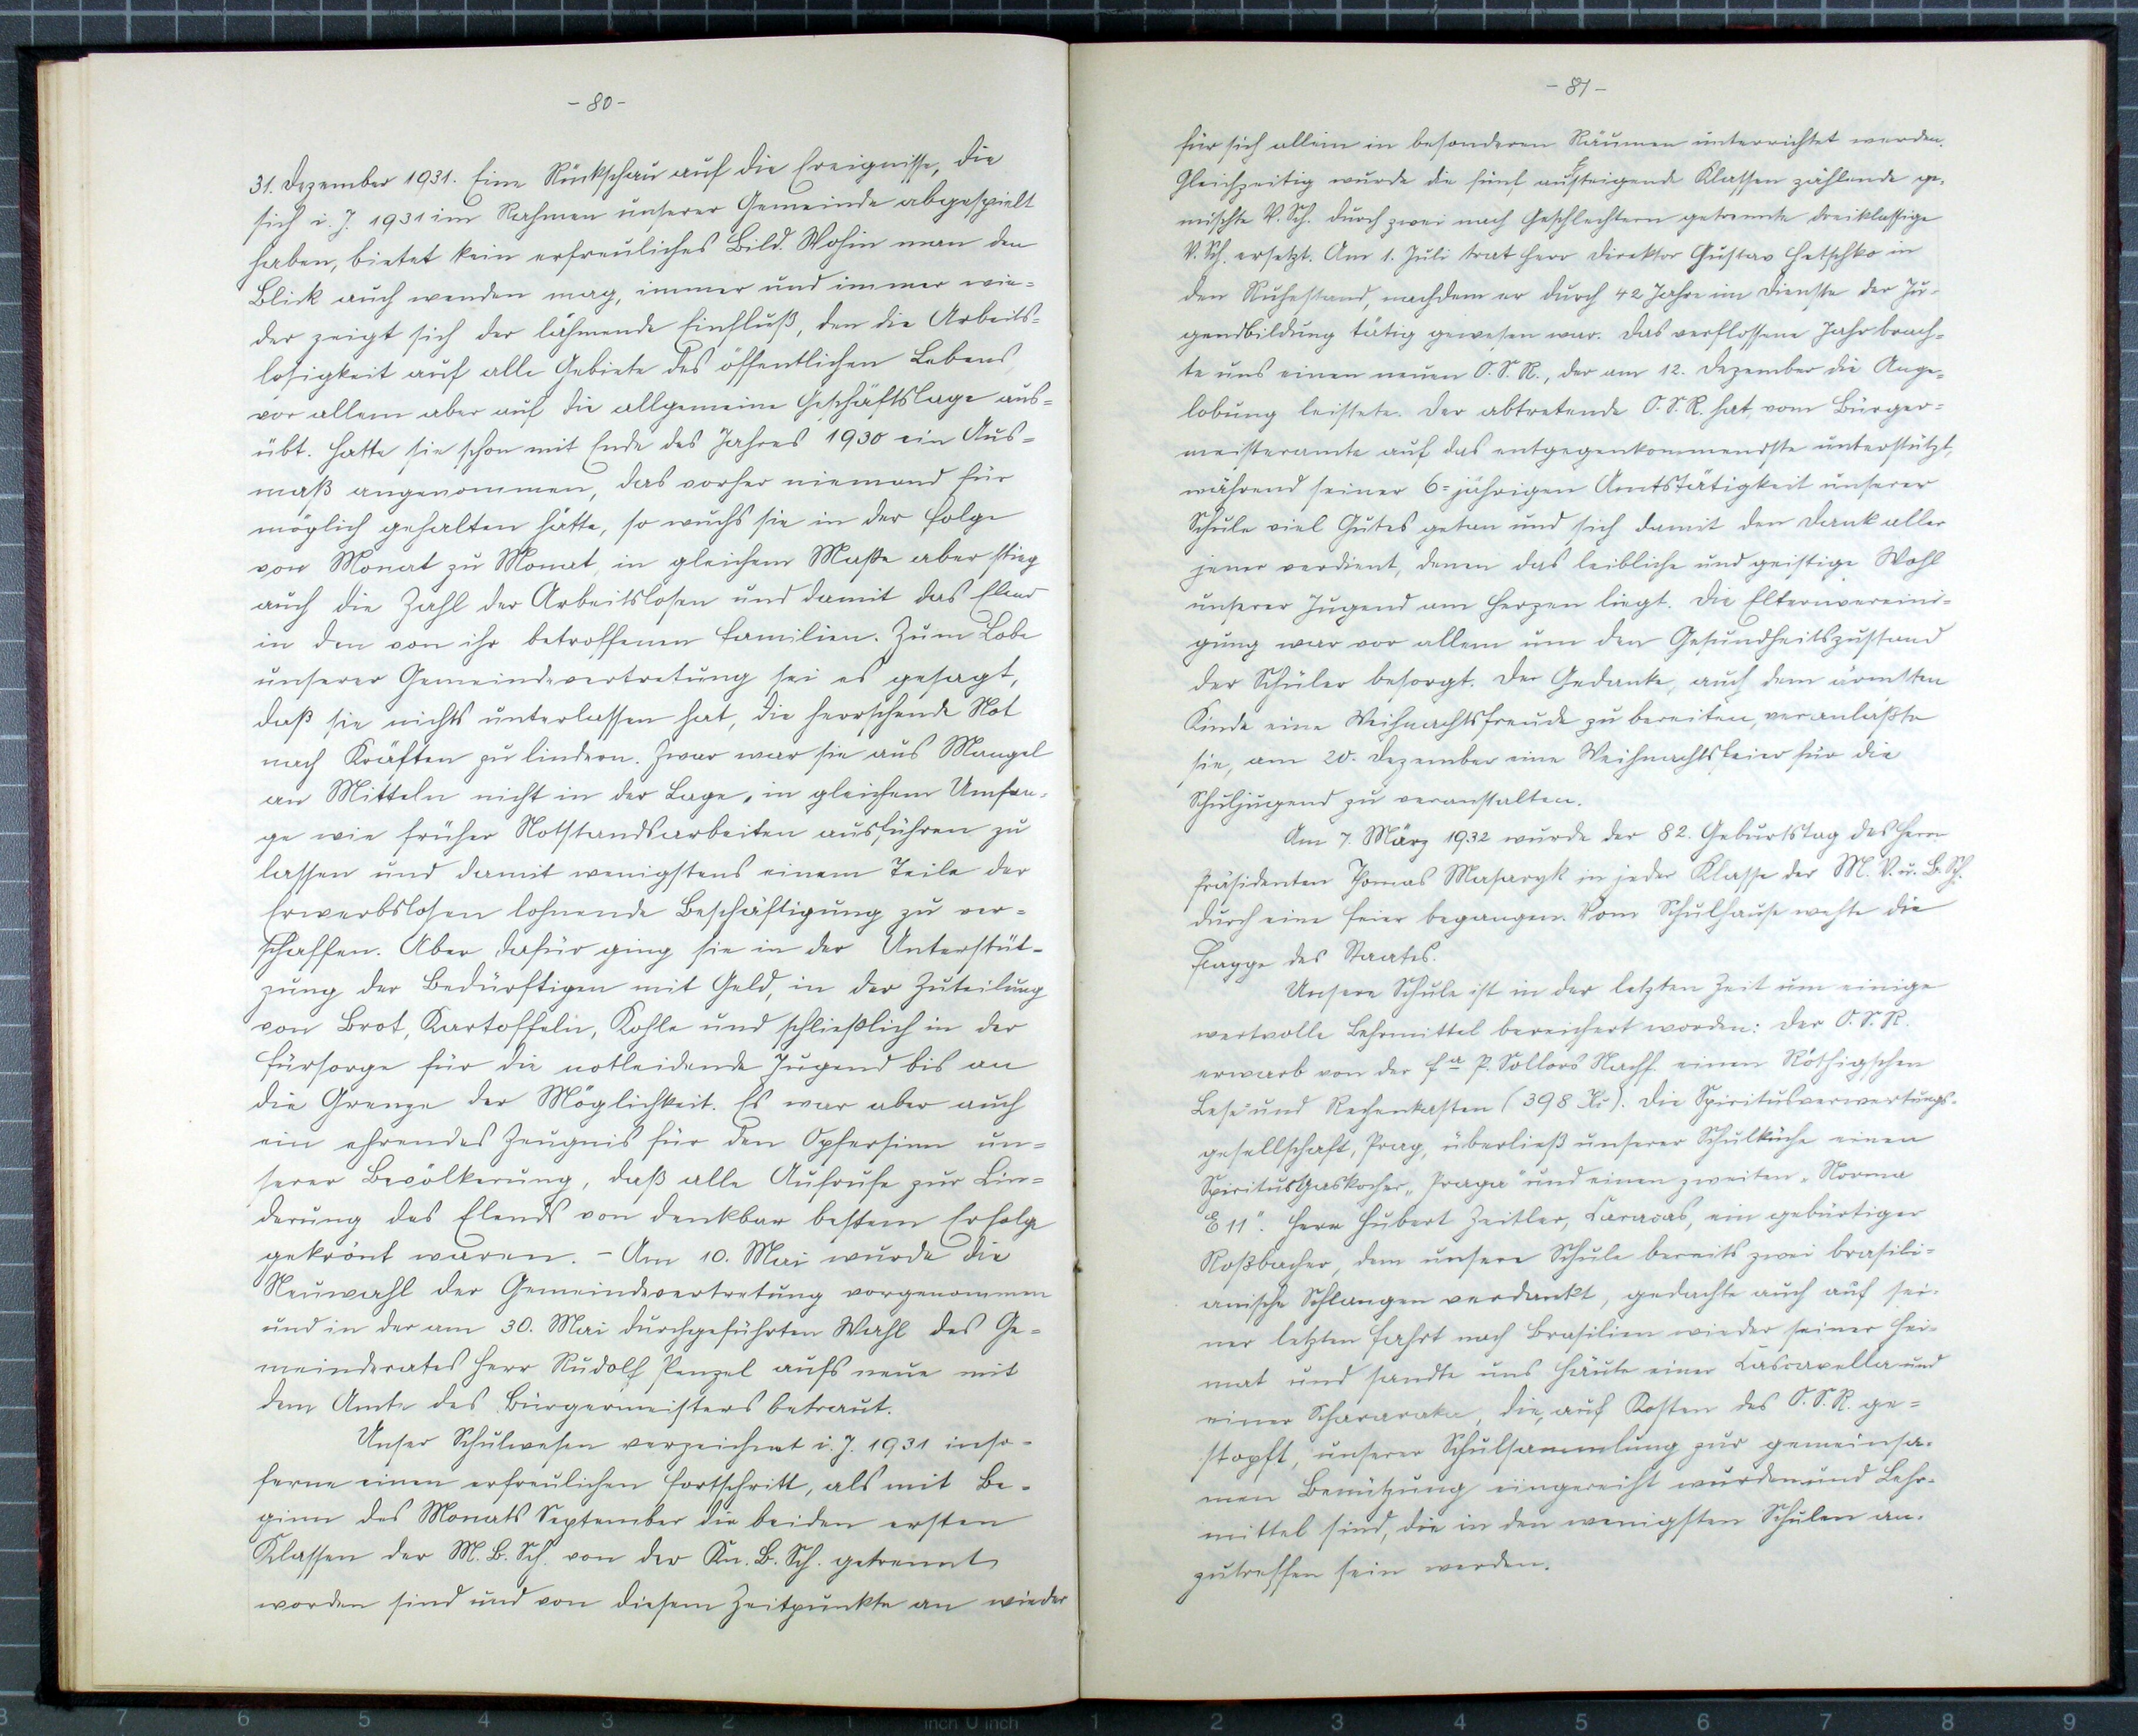 - 80 -
31. Dezember 1931. Eine Rückschau auf die Ereignisse, die
sich i. J. 1931 im Rahmen unserer Gemeinde abgespielt
haben, bietet kein erfreuliches Bild. Wohin man den
Blick auch wenden mag, immer und immer wie=
der zeigt sich der lähmende Einfluß, den die Arbeits=
losigkeit auf alle Gebiete des öffentlichen Lebens,
vor allem aber auf die allgemeine Geschäftslage aus=
übt. Hatte sie schon mit Ende des Jahres 1930 ein Aus=
maß angenommen, das vorher niemand für
möglich gehalten hätte, so wuchs sie in der Folge
von Monat zu Monat, in gleichem Maße aber stieg
auch die Zahl der Arbeitslosen und damit das Elend
in den von ihr betroffenen Familien. Zum Lobe
unserer Gemeindevertretung sei es gesagt,
daß sie nichts unterlassen hat, die herrschende Not
nach Kräften zu lindern. Zwar war sie aus Mangel
an Mitteln nicht in der Lage, in gleichem Umfan=
ge wie früher Notstandsarbeiten ausführen zu
lassen und damit wenigstens einem Teile der
Erwerbslosen lohnende Beschäftigung zu ver=
schaffen. Aber dafür ging sie in der Unterstüt=
zung der Bedürftigen mit Geld, in der Zuteilung
von Brot, Kartoffeln, Kohle und schließlich in der
Fürsorge für die notleidende Jugend bis an
die Grenze der Möglichkeit. Es war aber auch
ein ehrendes Zeugnis für den Opfersinn un=
serer Bevölkerung, daß alle Aufrufe zur Lin=
derung des Elends von denkbar bestem Erfolge
gekrönt waren. - Am 10. Mai wurde die
Neuwahl der Gemeindevertretung vorgenommen
und in der am 30. Mai durchgeführten Wahl des Ge=
meinderates Herr Rudolf Penzel aufs neue mit
dem Amte des Bürgermeisters betraut.
Unser Schulwesen verzeichnet i. J. 1931 inso=
ferne einen erfreulichen Fortschritt, als mit Be=
ginn des Monats September die beiden ersten
Klassen der M. B. Sch. von der Kn. B. Sch. getrennt
worden sind und von diesem Zeitpunkte an wieder
- 81 -
für sich allein in besonderen Räumen unterrichtet werden.
Gleichzeitig wurde die fünf aufsteigende Klassen zählende ge=
mischte V. Sch. durch zwei nach Geschlechtern getrennte dreiklassige
V. Sch. ersetzt. Am 1. Juli trat Herr Direktor Gustav Hetschko in
den Ruhestand, nachdem er durch 42 Jahre im Dienste der Ju=
gendbildung tätig gewesen war. Das verflossene Jahr brach=
te uns einen neuen O. S. R., der am 12. Dezember die Ange=
lobung leistete. Der abtretende O. S. R. hat, vom Bürger=
meisteramte auf das entgegenkommendste unterstützt,
während seiner 6=jährigen Amtstätigkeit unserer
Schule viel Gutes getan und sich damit den Dank aller
jener verdient, denen das leibliche und geistige Wohl
unserer Jugend am Herzen liegt. Die Elternvereini=
gung war vor allem um den Gesundheitszustand
der Schüler besorgt. Der Gedanke, auch dem ärmsten
Kinde eine Weihnachtsfreude zu bereiten, veranlaßte
sie, am 20. Dezember eine Weihnachtsfeier für die
Schuljugend zu veranstalten.
Am 7. März 1932 wurde der 82. Geburtstag des Herrn
Präsidenten Thomas Masaryk in jeder Klasse der M. V. u. B. Sch.
durch eine Feier begangen. Vom Schulhause wehte die
Flagge des Staates.
Unsere Schule ist in der letzten Zeit um einige
wertvolle Lehrmittel bereichert worden: Der O. S. R.
erwarb von der Fa P. Sollors Nachf. einen Röthigschen
Lese- und Rechenkasten (398 Kč). Die Spiritusverwertungs=
gesellschaft, Prag, überließ unserer Schulküche einen
Spiritusgaskocher „Praga" und einen zweiten „Norma
E 11". Herr Hubert Zeitler, Caracas, ein gebürtiger
Roßbacher, dem unsere Schule bereits zwei brasili=
anische Schlangen verdankt, gedachte auch auf sei=
ner letzten Fahrt nach Brasilien wieder seiner Hei=
mat und sandte uns Häute einer Cascavella und
einer Schararaka, die, auf Kosten des O. S. R. ge=
stopft, unserer Schulsammlung zur gemeinsa=
men Benützung eingereiht wurden und Lehr=
mittel sind, die in den wenigsten Schulen an=
zutreffen sein werden.
8 7 6 5 4 3 2 1 inch U inch 1 2 3 4 5 6 7 8 9